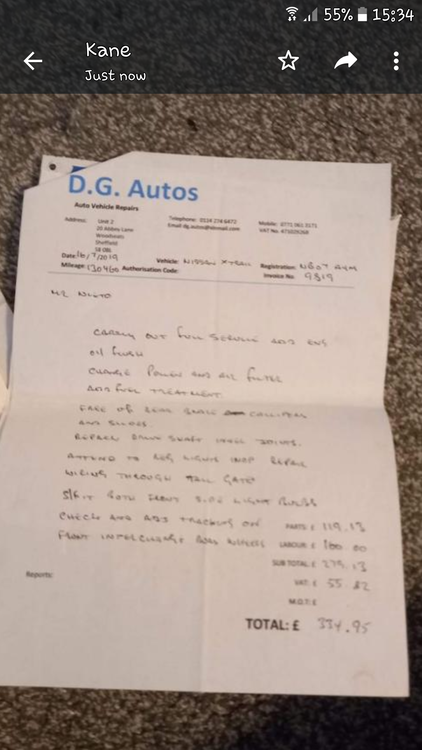 55% 15:34
Kane
Just now
D.G. Autos
Auto Vehicle Repairs
Address: Unit 2
20 Abbey Lane
Woodseats
Sheffield
S8 0BL
Telephone: 0114 274 6472
Mobile: 0771 061 3171
VAT No.
Date 16/7/2019
Vehicle: NISSAN X-TRAIL
Registration:
Mileage: 130460 Authorisation Code:
Invoice No. 9819
MR
CARRY OUT FULL SERVICE AND ENG
OIL FLUSH
CHANGE POLLEN AND AIR FILTER
ADD FUEL TREATMENT
FREE UP REAR BRAKE CALLIPERS
AND SLIDES
REPACK DRIVE SHAFT INNER JOINTS.
ATTEND TO REG LIGHTS INOP REPAIR
WIRING THROUGH TAIL GATE
S/FIT BOTH FRONT SIDE LIGHT BULBS
CHECK AND ADJ TRACKING ON
FRONT INTERCHANGE ROAD WHEELS
PARTS £ 119.13
LABOUR: £ 160.00
SUB TOTAL: £ 279.13
VAT: £ 55.82
M.O.T: £
Reports:
TOTAL: £ 334.95